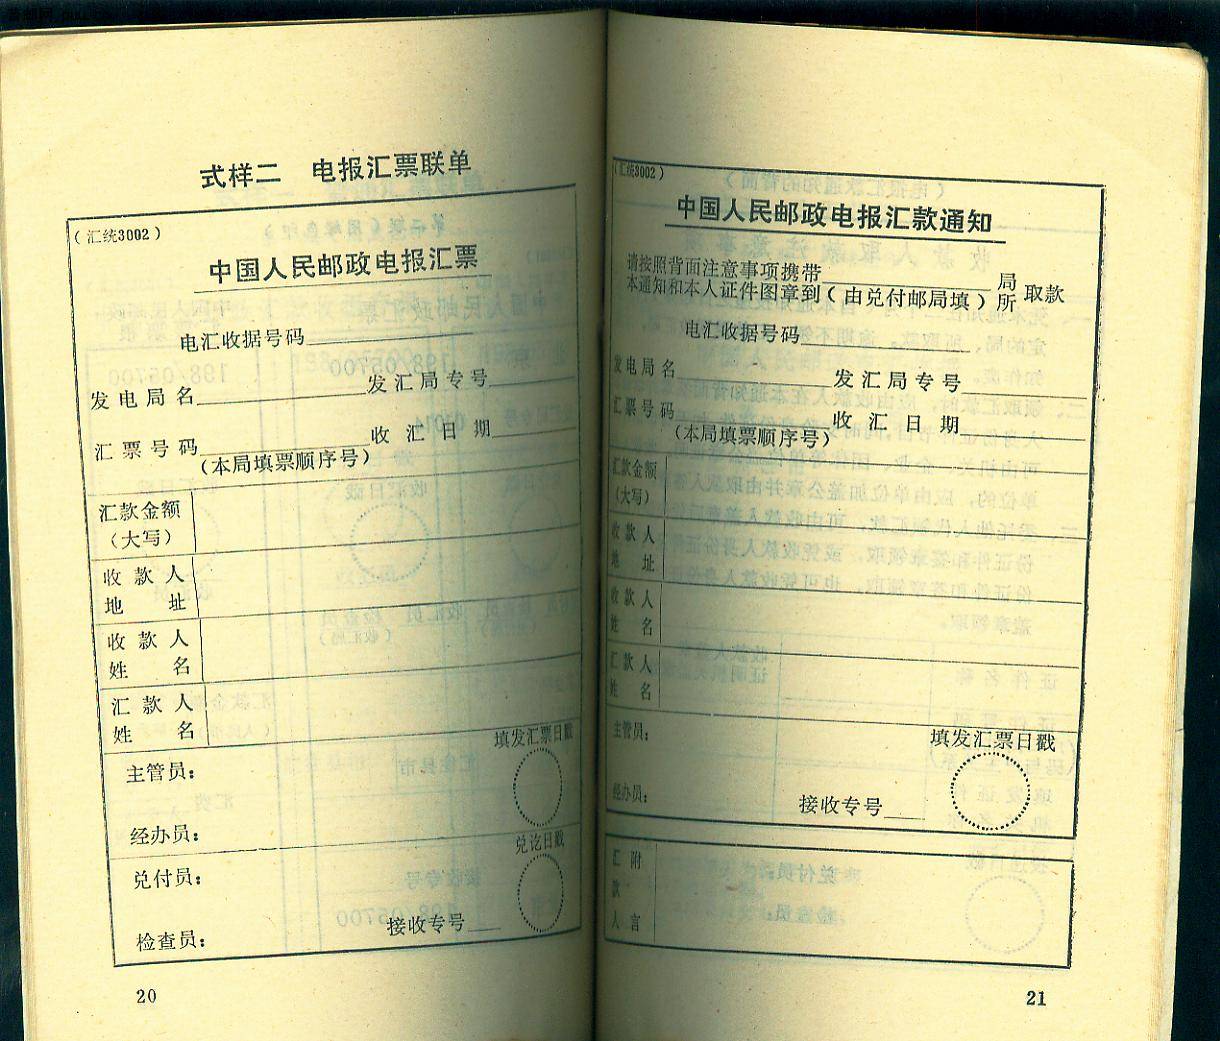 式样二 电报汇票联单
（汇统3002）
中国人民邮政电报汇票
电汇收据号码
发电局名 发汇局专号
汇票号码 收汇日期
（本局填票顺序号）
汇款金额
（大写）
收款人
地址
收款人
姓名
汇款人
姓名
填发汇票日戳
主管员：
经办员：
兑讫日戳
兑付员：
接收专号
检查员：
20
（汇统3002）
中国人民邮政电报汇款通知
请按照背面注意事项携带
本通知和本人证件图章到（由兑付邮局填）局所取款
电汇收据号码
发电局名 发汇局专号
汇票号码 收汇日期
（本局填票顺序号）
汇款金额
（大写）
收款人
地址
收款人
姓名
汇款人
姓名
主管员：
填发汇票日戳
经办员：
接收专号
汇款人
附言
21